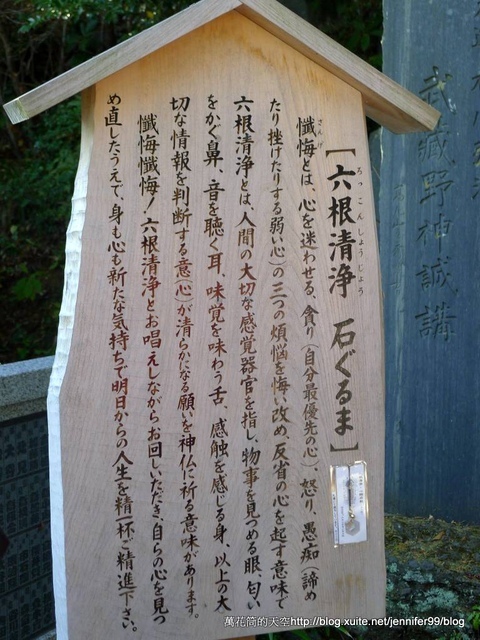 ［六根清浄　石ぐるま］
ろっこんしょうじょう
懺悔とは、心を迷わせる、貪り（自分最優先の心）、怒り、愚痴（諦め
さんげ
たり挫けたりする弱い心）の三つの煩悩を悔い改め、反省の心を起す意味で
六根清浄とは、人間の大切な感覚器官を指し、物事を見つめる眼、匂い
をかぐ鼻、音を聴く耳、味覚を味わう舌、感触を感じる身、以上の大
切な情報を判断する意（心）が清らかになる願いを神仏に祈る意味があります。
懺悔懺悔！六根清浄とお唱えしながらお回しいただき、自らの心を見つ
め直したうえで、身も心も新たな気持ちで明日からの人生を精一杯ご精進下さい。
武蔵野神誠講
萬花筒的天空http://blog.xuite.net/jennifer99/blog